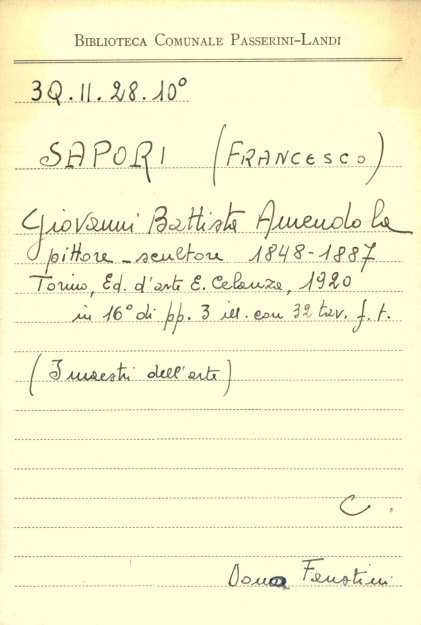 BIBLIOTECA COMUNALE PASSERINI-LANDI
3Q.II.28.10°
SAPORI (FRANCESCO)
Giovanni Battista Amendola
pittore - scultore 1848-1887
Torino, Ed. d'arte E. Celanza, 1920
in 16° di pp. 3 ill. con 32 tav. f. t.
(I maestri dell'arte)
C.
Dono